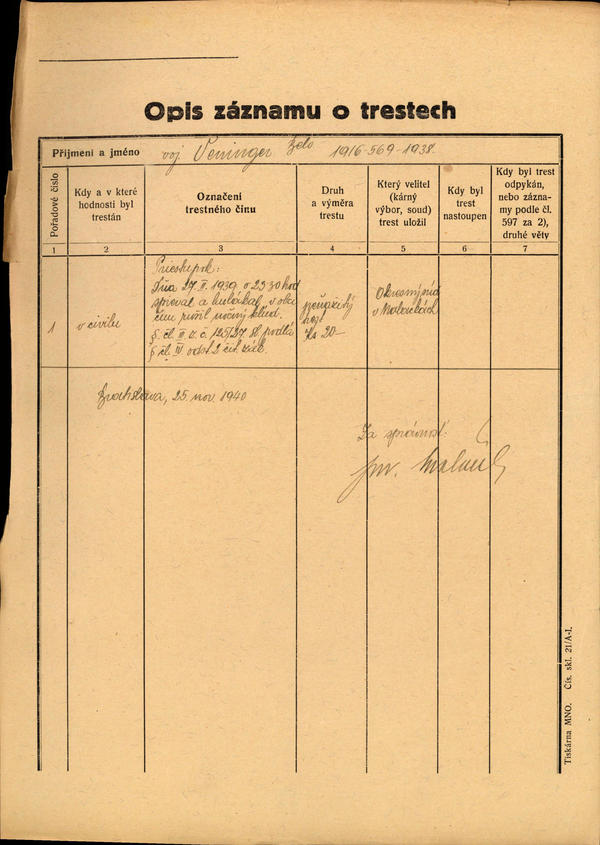 Opis záznamu o trestech
Příjmení a jméno voj. Weninger 1916-569-1938.
Pořadové číslo
Kdy a v které hodnosti byl trestán
Označení trestného činu
Druh a výměra trestu
Který velitel (kárný výbor, soud) trest uložil
Kdy byl trest nastoupen
Kdy byl trest odpykán, nebo záznamy podle čl. 597 za 2), druhé věty
1 2 3 4 5 6 7
Priestupok:
Dňa 27. II. 1939 o 23:30 hod
spieval a hulákal, v obci
čím rušil nočný kľud.
§ čl. III. z. č. 125/27 Sb. podľa
§ čl. IV odst. 2 cit. zák.
1
v civilu
peňažitý
Ks 20.–
Okresný úd
v Malackách
Bratislava, 25. nov. 1940
Za správnosť:
Tiskárna MNO. Čís. skl. 21/A-I.